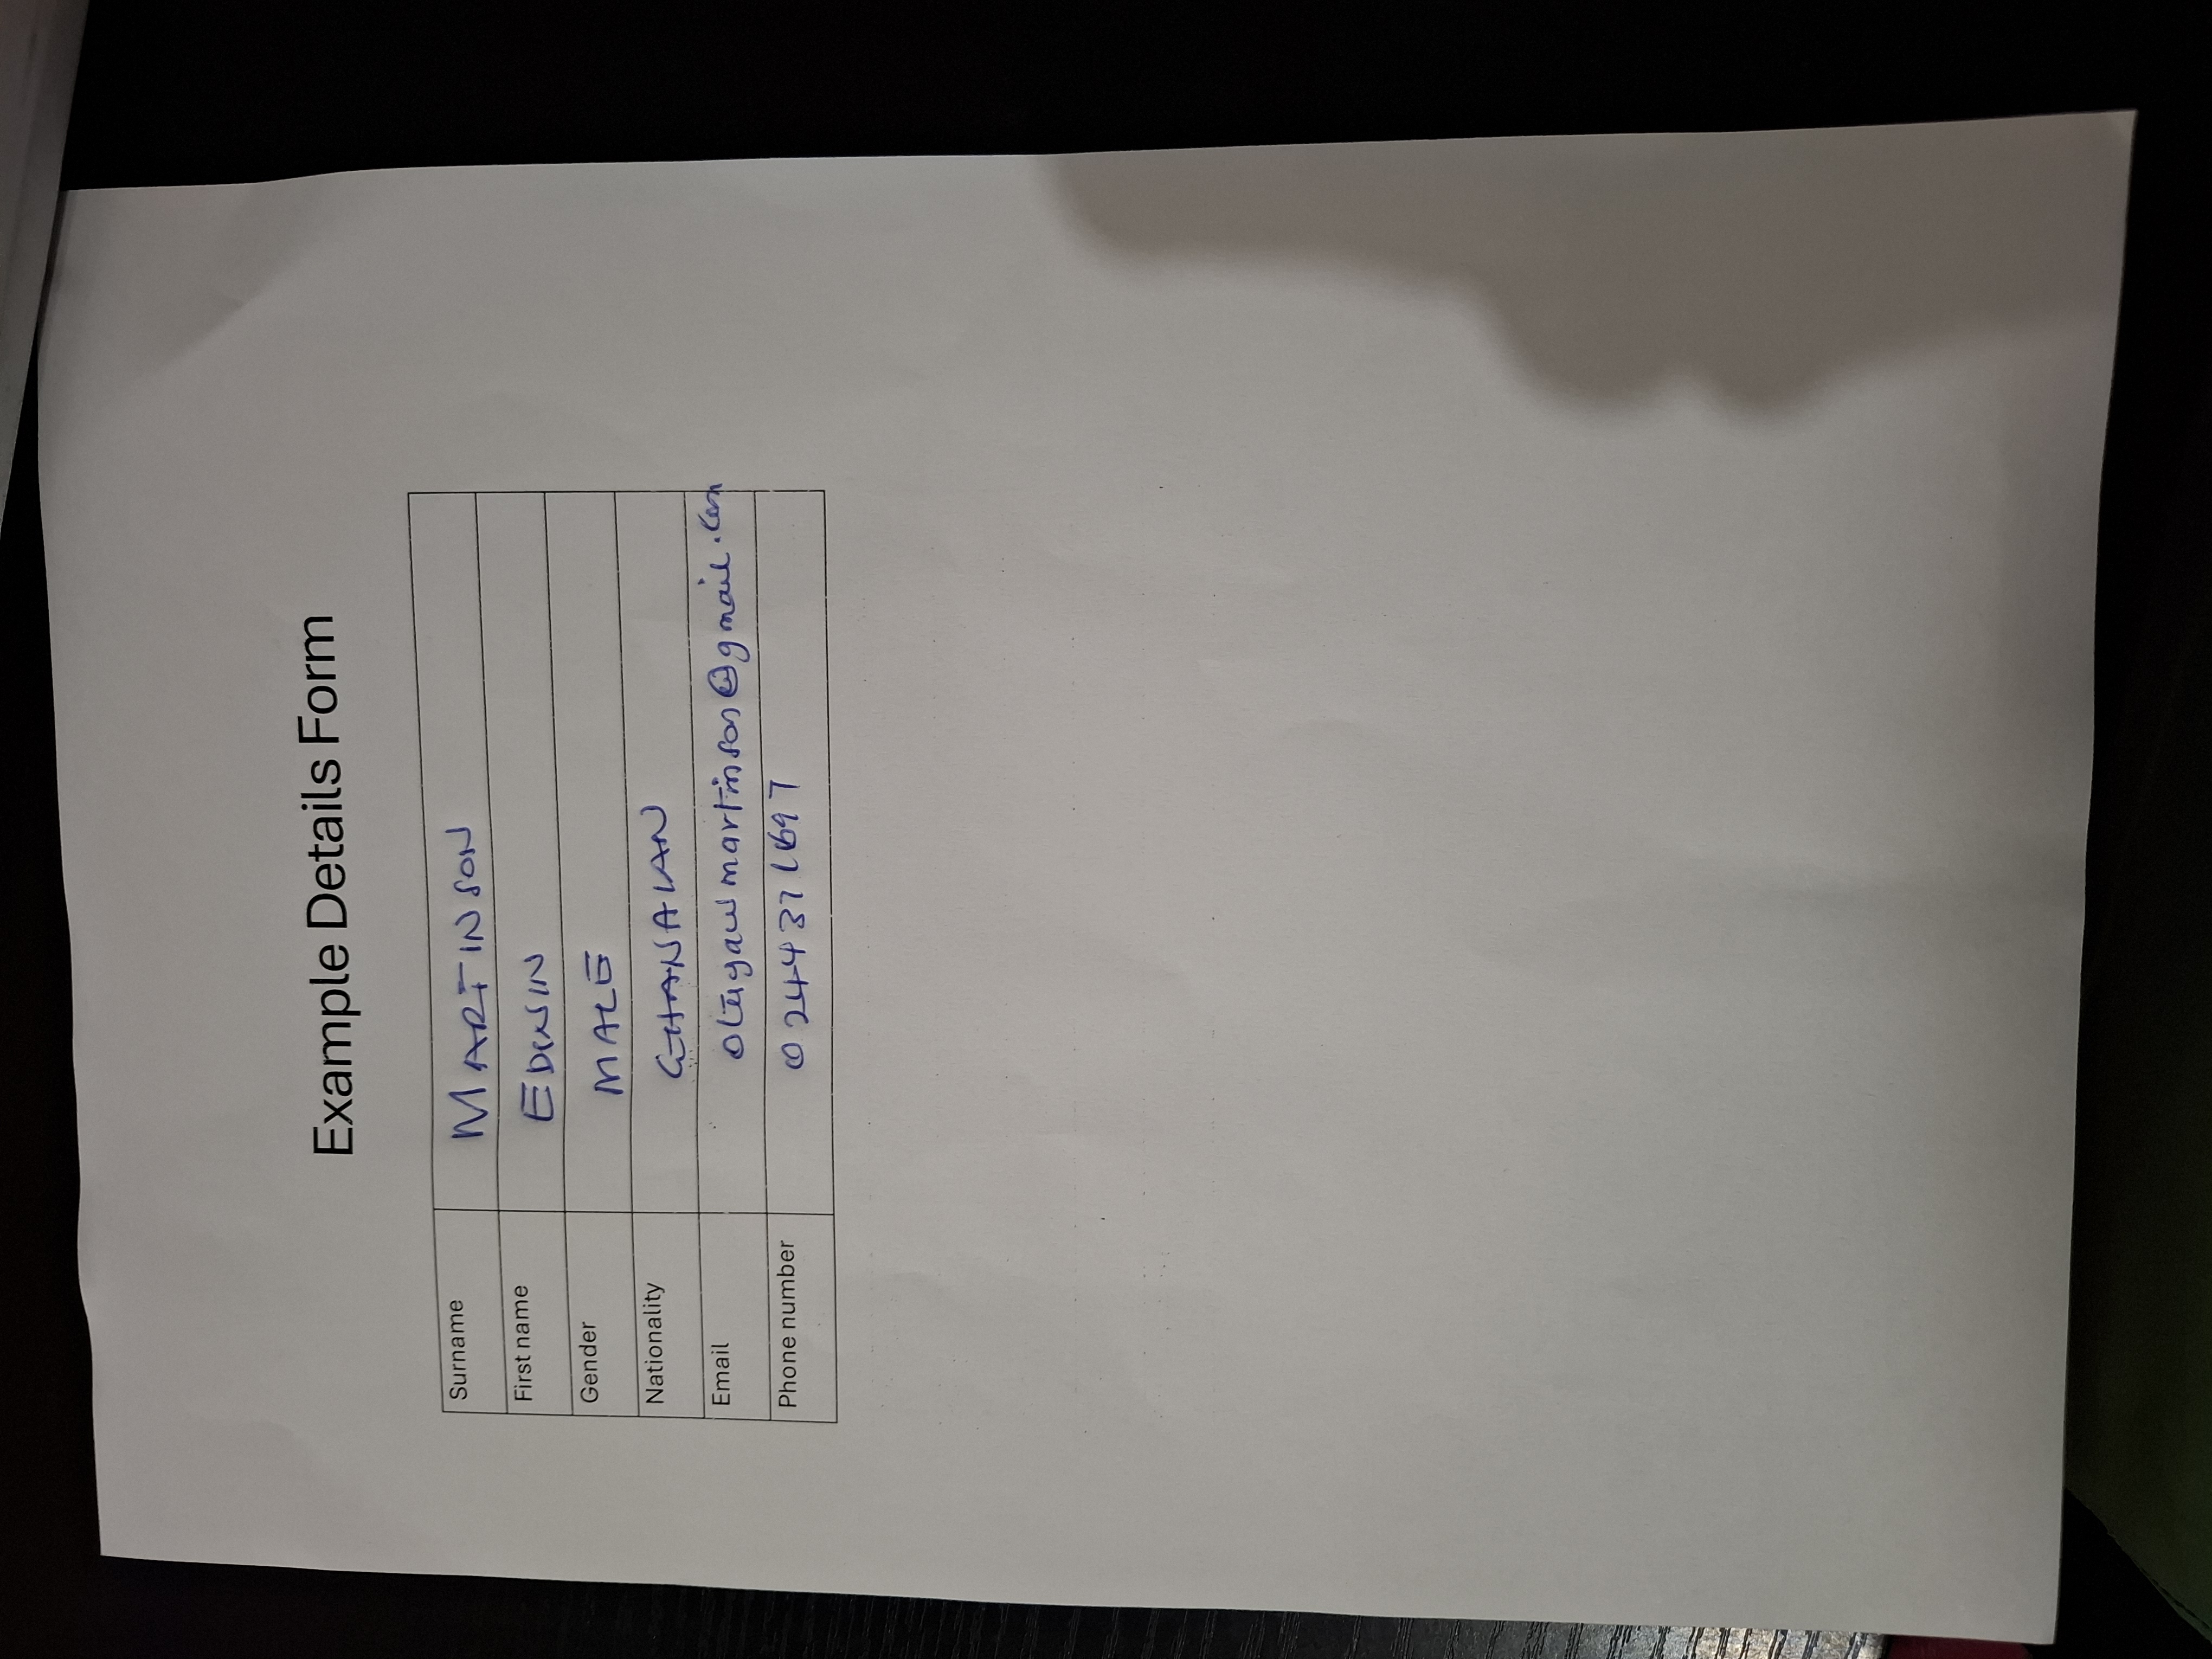 Example Details Form
Surname MARTINSON
First name EDWIN
Gender MALE
Nationality GHANAIAN
Email otuyawmartinson@gmail.com
Phone number 0244371697